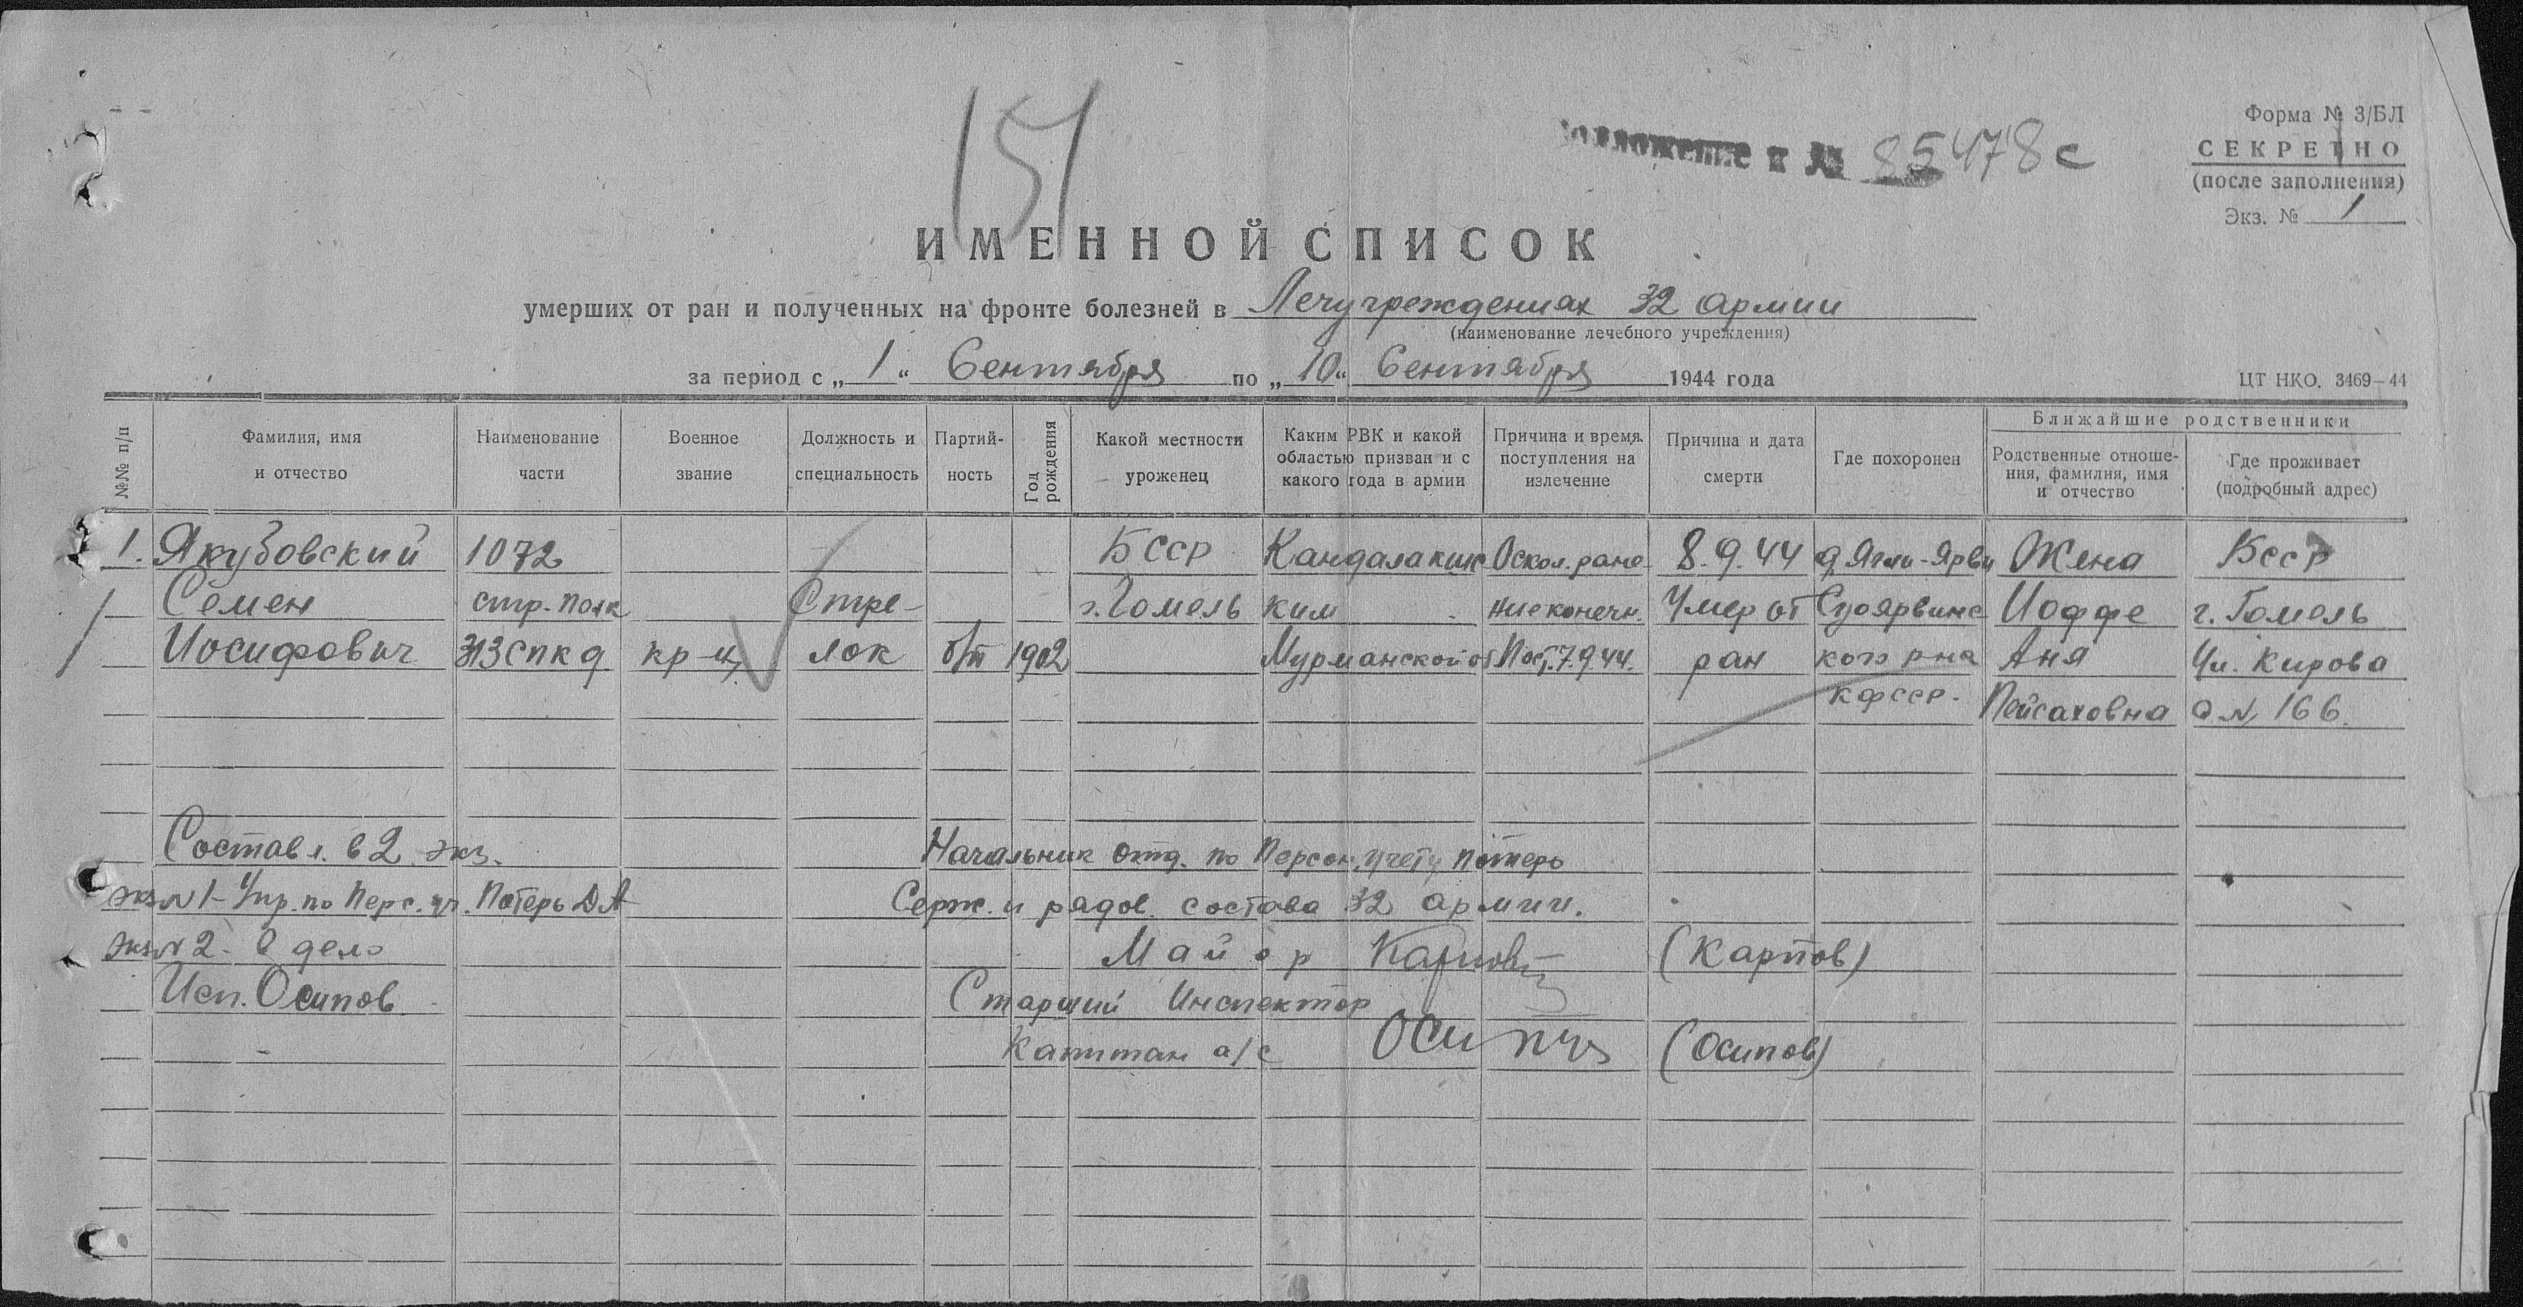 151
Приложение к № 85478с
Форма № 3/БЛ
СЕКРЕТНО
(после заполнения)
Экз. № 1
ИМЕННОЙ СПИСОК
умерших от ран и полученных на фронте болезней в Лечучреждениях 32 армии
(наименование лечебного учреждения)
за период с „1“ Сентября по „10“ Сентября 1944 года
ЦТ НКО. 3469—44
№№ п/п
Фамилия, имя
и отчество
Наименование
части
Военное
звание
Должность и
специальность
Партий-
ность
Год
рождения
Какой местности
уроженец
Каким РВК и какой
областью призван и с
какого года в армии
Причина и время
поступления на
излечение
Причина и дата
смерти
Где похоронен
Ближайшие родственники
Родственные отноше-
ния, фамилия, имя
и отчество
Где проживает
(подробный адрес)
1. Якубовский 1072 БССР Кандалакшс Оскол. ране- 8.9.44 д. Ягли-Ярви Жена Бсср
Семен стр. полк Стре- г. Гомель ким ние конечн. Умер от Суоярвинс Иоффе г. Гомель
Иосифович 313 спкд кр-ц лок б/п 1902 Мурманской об Пост. 7.9.44. ран кого р-на Аня Ул. Кирова
кфсср. Пейсаховна д N 166.
Составл. в 2 экз. Начальник отд. по Персон. учету потерь
экз N 1 - Упр. по Перс. уч. Потерь ДА Серж. и рядов. состава 32 армии.
Экз N 2 - в дело Майор Карпов (Карпов)
Исп. Осипов Старший Инспектор
Капитан а/с Осипов (Осипов)